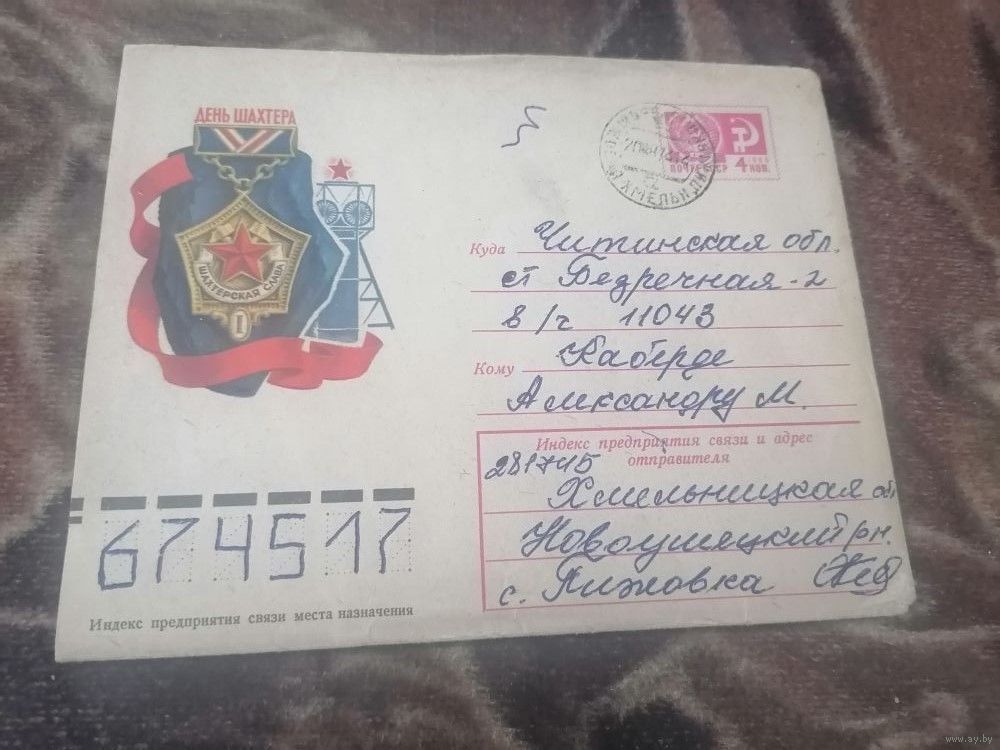 ДЕНЬ ШАХТЕРА
ШАХТЕРСКАЯ СЛАВА
I
ПОЧТА СССР 4 КОП.
1966
Куда Читинская обл.
ст Безречная-2
в/ч 11043
Кому Каберде
Александру М.
Индекс предприятия связи и адрес
отправителя
281745
Хмельницкая обл
Новоушицкий рн.
с. Пижовка
674517
Индекс предприятия связи места назначения
www.ay.by